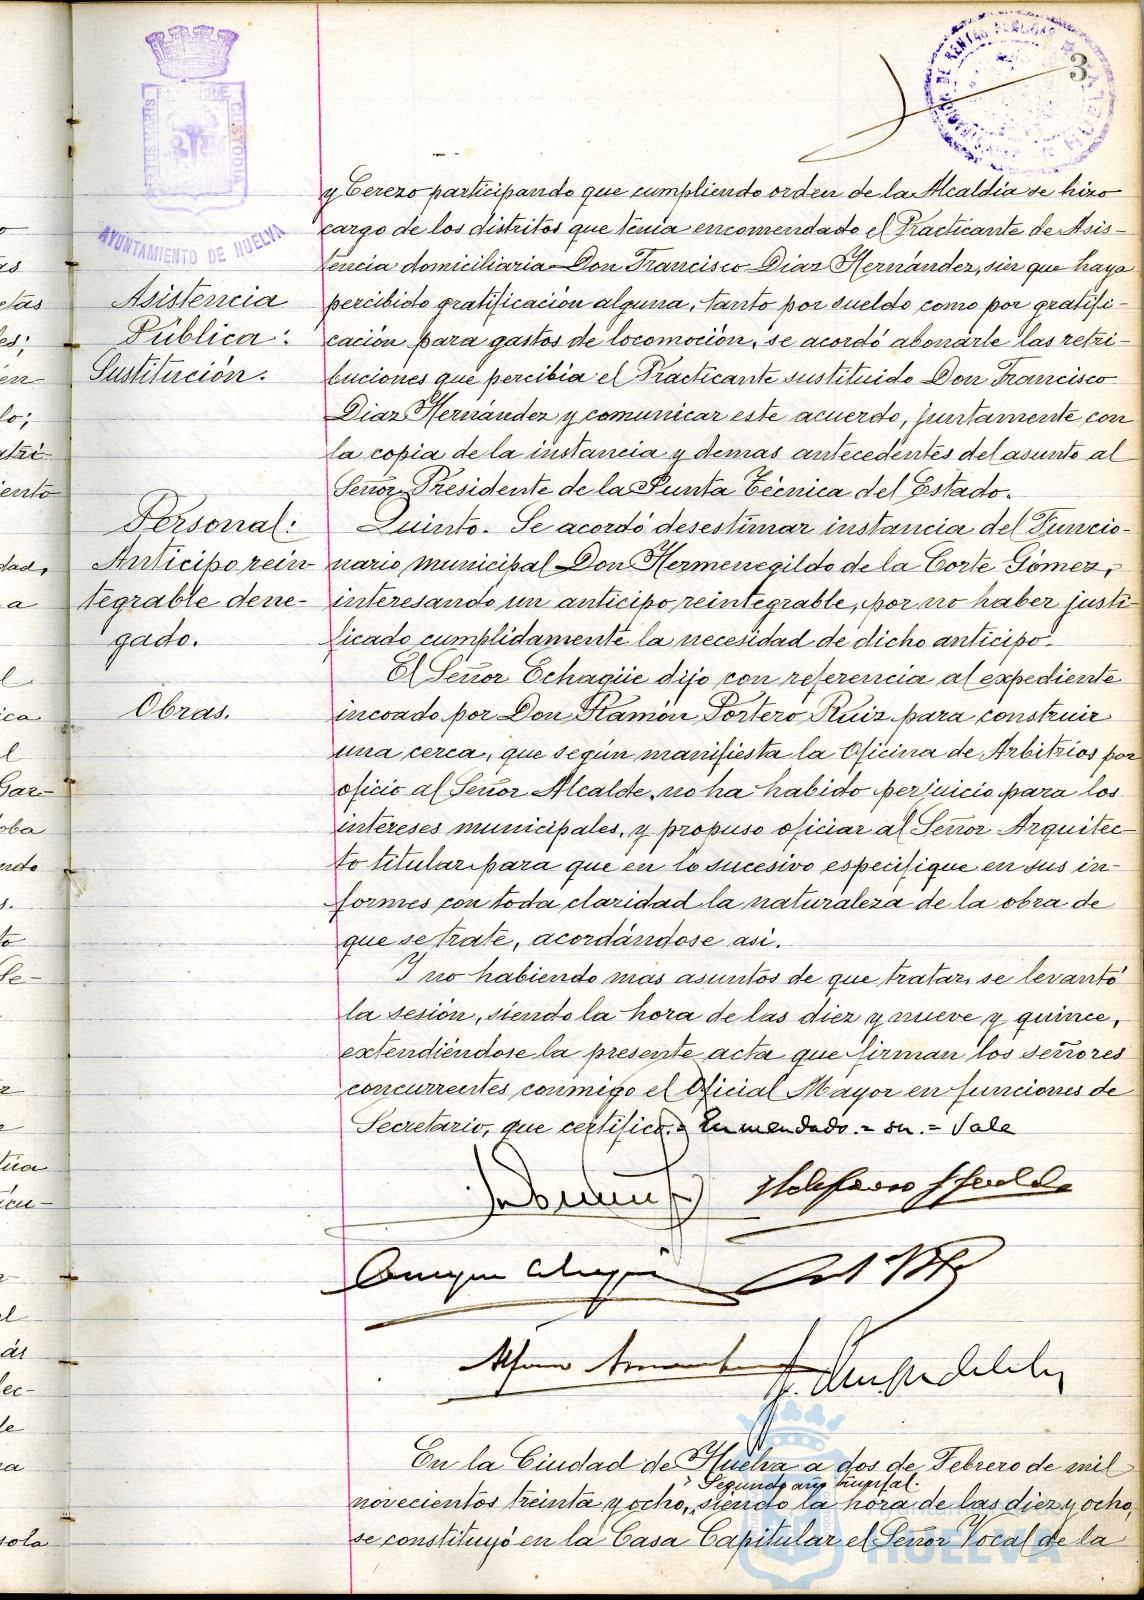 3
AYUNTAMIENTO DE HUELVA
y Cerezo participando que cumpliendo orden de la Alcaldía se hizo
cargo de los distritos que tenía encomendado el Practicante de Asis-
tencia domiciliaria Don Francisco Diaz Hernández, sin que haya
Asistencia
percibido gratificación alguna, tanto por sueldo como por gratifi-
Pública:
cación para gastos de locomoción, se acordó abonarle las retri-
Sustitución.
buciones que percibia el Practicante sustituido Don Francisco
Diaz Hernández y comunicar este acuerdo, juntamente con
la copia de la instancia y demas antecedentes del asunto al
Señor Presidente de la Junta Técnica del Estado.
Personal:
Quinto. Se acordó desestimar instancia del Funcio-
Anticipo rein-
nario municipal Don Hermenegildo de la Corte Gómez,
tegrable dene-
interesando un anticipo reintegrable, por no haber justi-
gado.
ficado cumplidamente la necesidad de dicho anticipo.
El Señor Echagüe dijo con referencia al expediente
Obras.
incoado por Don Ramón Portero Ruiz para construir
una cerca, que según manifiesta la Oficina de Arbitrios por
oficio al Señor Alcalde, no ha habido perjuicio para los
intereses municipales, y propuso oficiar al Señor Arquitec-
to titular para que en lo sucesivo especifique en sus in-
formes con toda claridad la naturaleza de la obra de
que se trate, acordándose asi.
Y no habiendo mas asuntos de que tratar, se levantó
la sesión, siendo la hora de las diez y nueve y quince,
extendiéndose la presente acta que firman los señores
concurrentes conmigo el Oficial Mayor en funciones de
Secretario, que certifico.= Enmendado.= su.= Vale
En la Ciudad de Huelva a dos de Febrero de mil
Segundo año triunfal.
novecientos treinta y ocho, siendo la hora de las diez y ocho,
se constituyó en la Casa Capitular el Señor Vocal de la
HUELVA